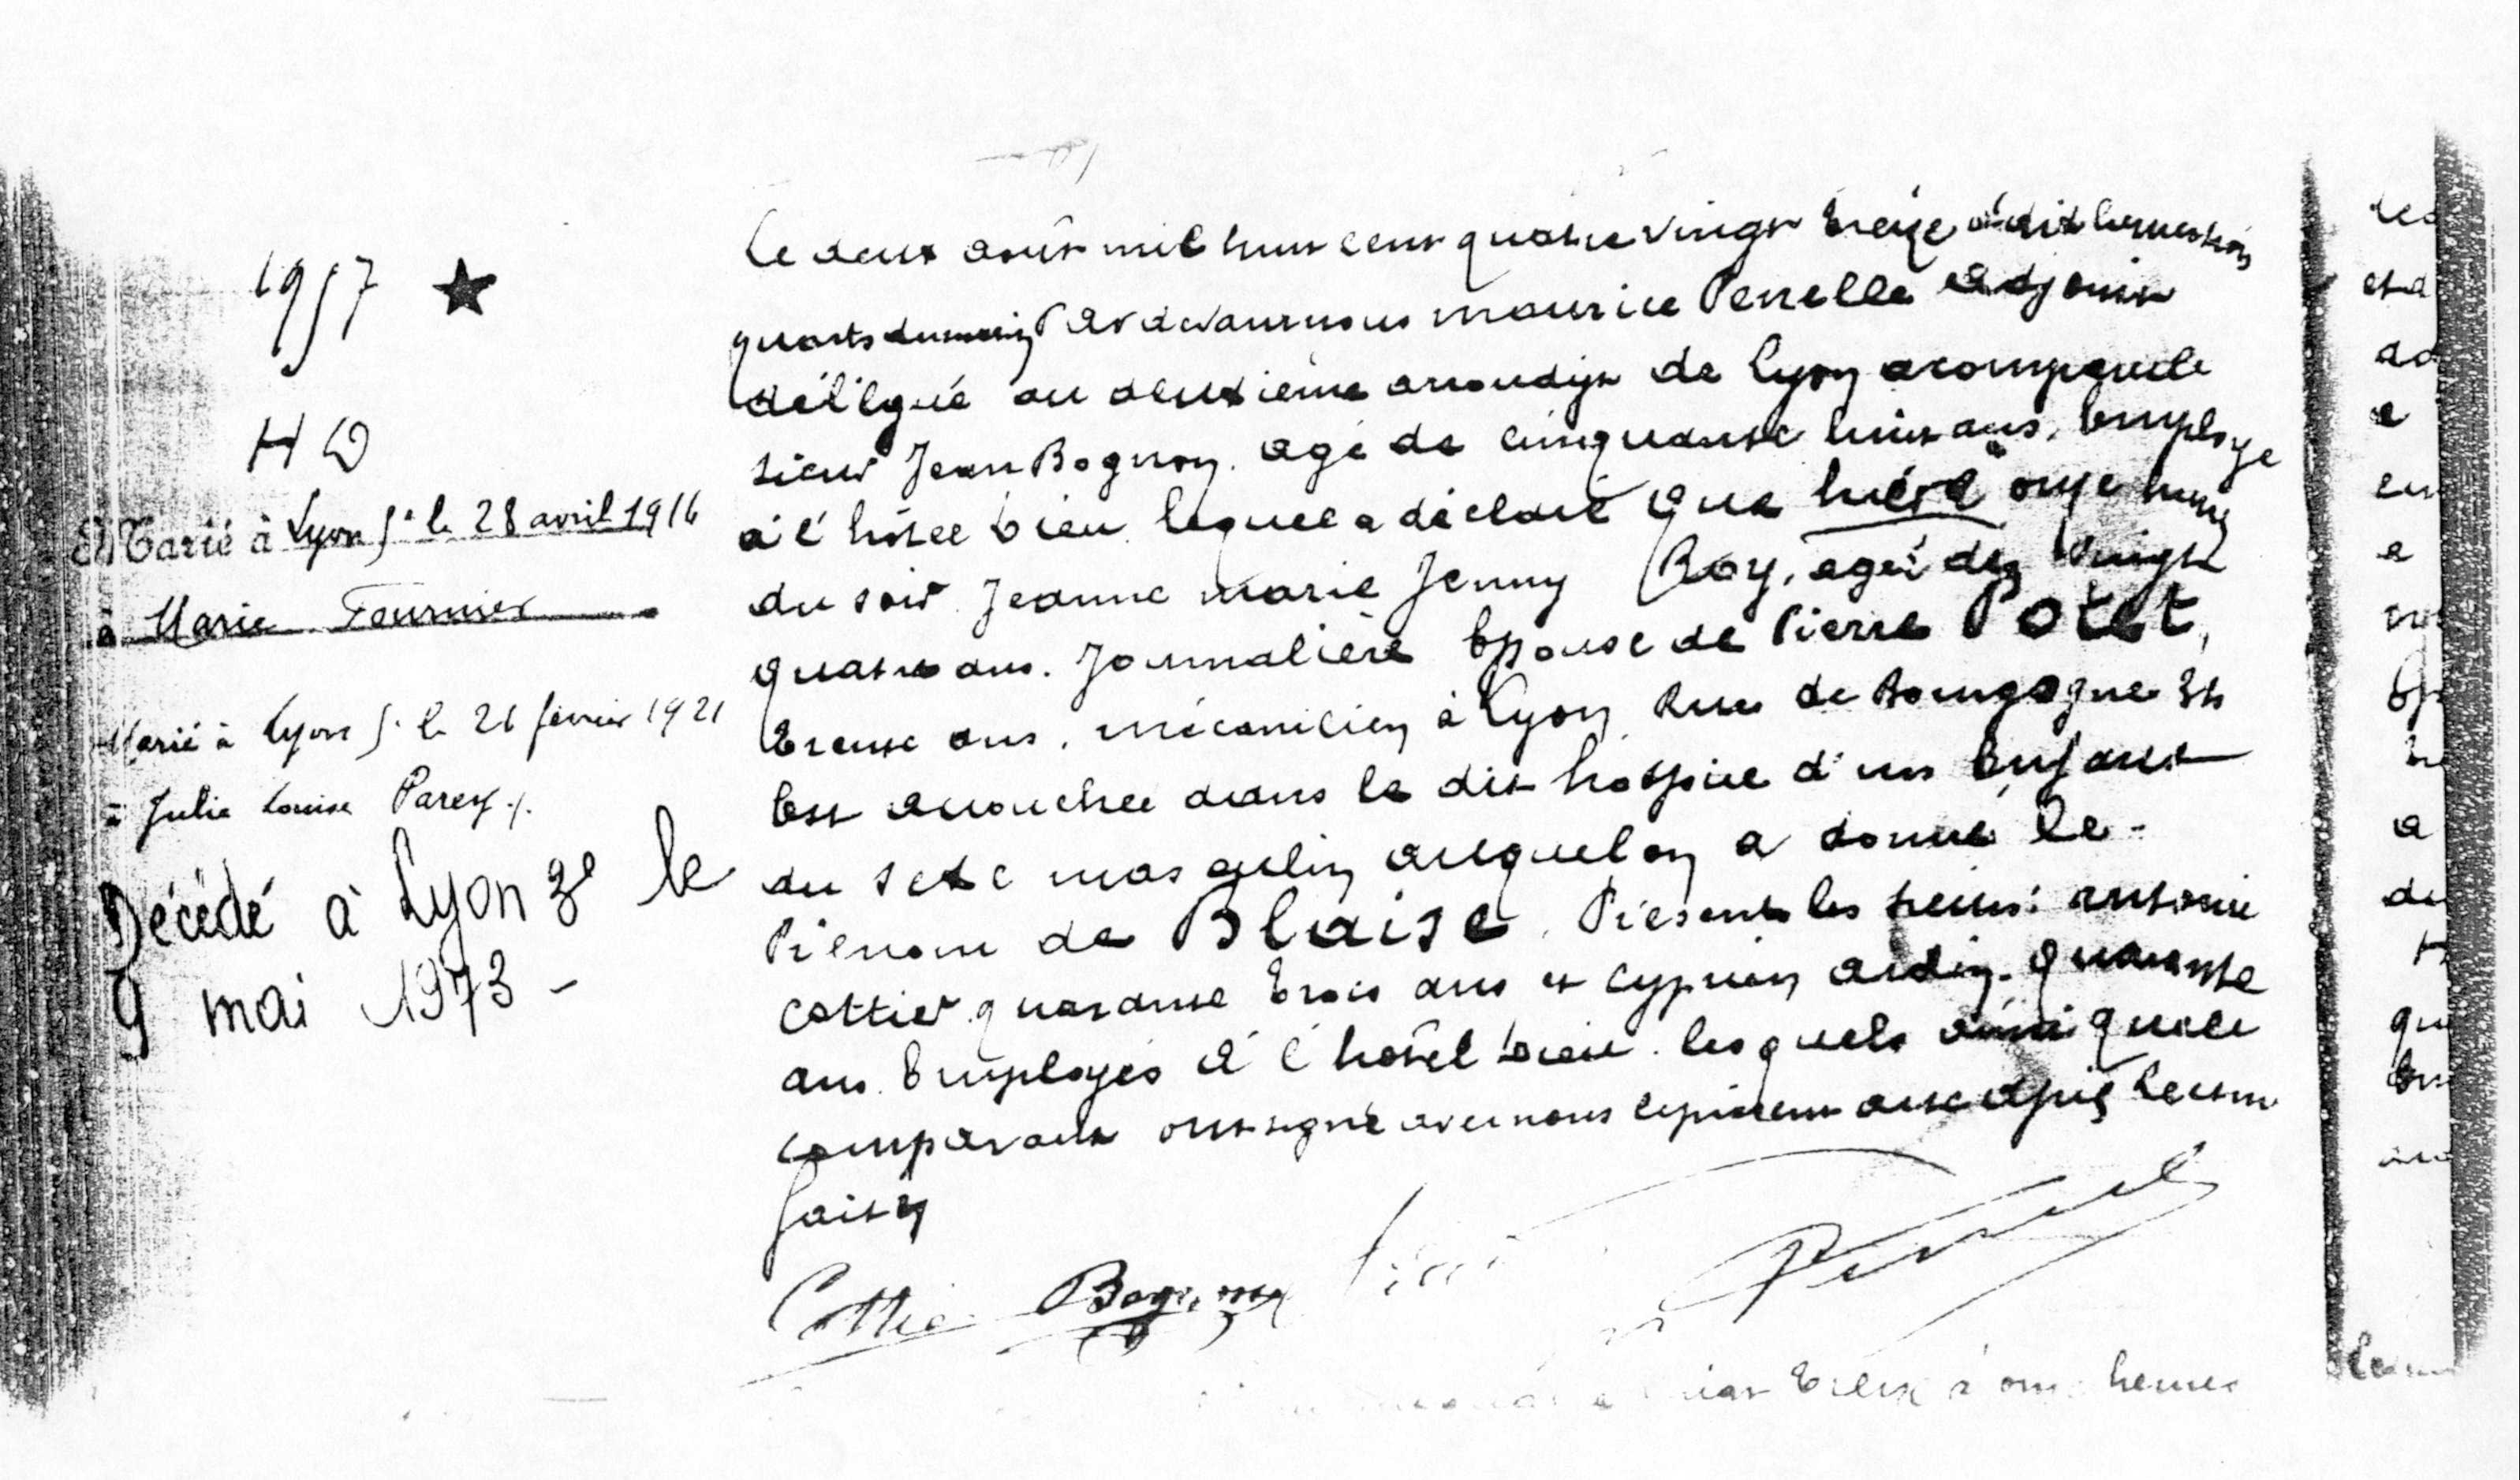 1957 ★
H D
Marié à Lyon 5e le 28 avril 1916
à Marie Fournier
Marié à Lyon 5e le 26 février 1921
à Julie Louise Parey
Décédé à Lyon 3e le
9 mai 1973 -
Le deux août mil huit cent quatre vingt treize à dix heures trois
quarts du matin Par devant nous maurice Perrelle adjoint
délégué au deuxième arrondist de Lyon a comparu le
sieur Jean Bognon, agé de cinquante huit ans, Employé
à l'hôtel Dieu, lequel a déclaré que hier à onze heures
du soir Jeanne marie Jenny Roy, agée de Vingt
quatre ans. Journalière Epouse de Pierre Potet,
trente ans, mécanicien à Lyon, Rue de Bourgogne
Est accouchée dans le dit hospice d'un Enfant
du sexe masculin auquel on a donné le -
Prénom de Blaise. Présents les sieurs antoine
Cottier quarante trois ans et cyprien quarante
ans. Employés à l'hôtel Dieu. lesquels ainsi que le
comparant ont signé avec nous le présent acte après lecture
faite
Cottier
à onze heures